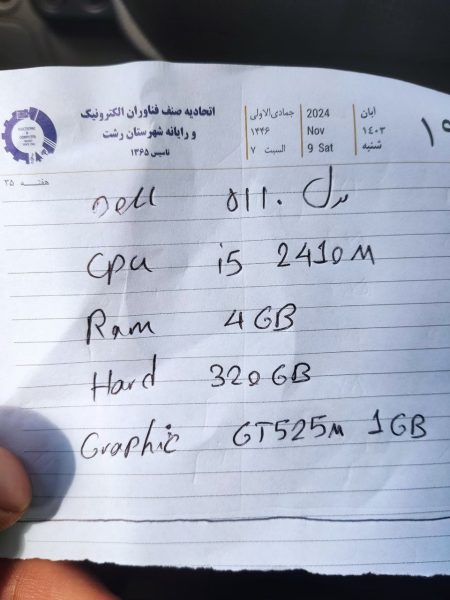 اتحادیه صنف فناوران الکترونیک
و رایانه شهرستان رشت
تاسیس ۱۳۶۵
جمادی‌الاولی
۱۴۴۶
السبت ۷
2024
Nov
9 Sat
آبان
۱۴۰۳
شنبه
۱۹
هفته ۳۵
Dell مدل ۵۱۱۰
Cpu i5 2410M
Ram 4GB
Hard 320GB
Graphic GT525M 1GB